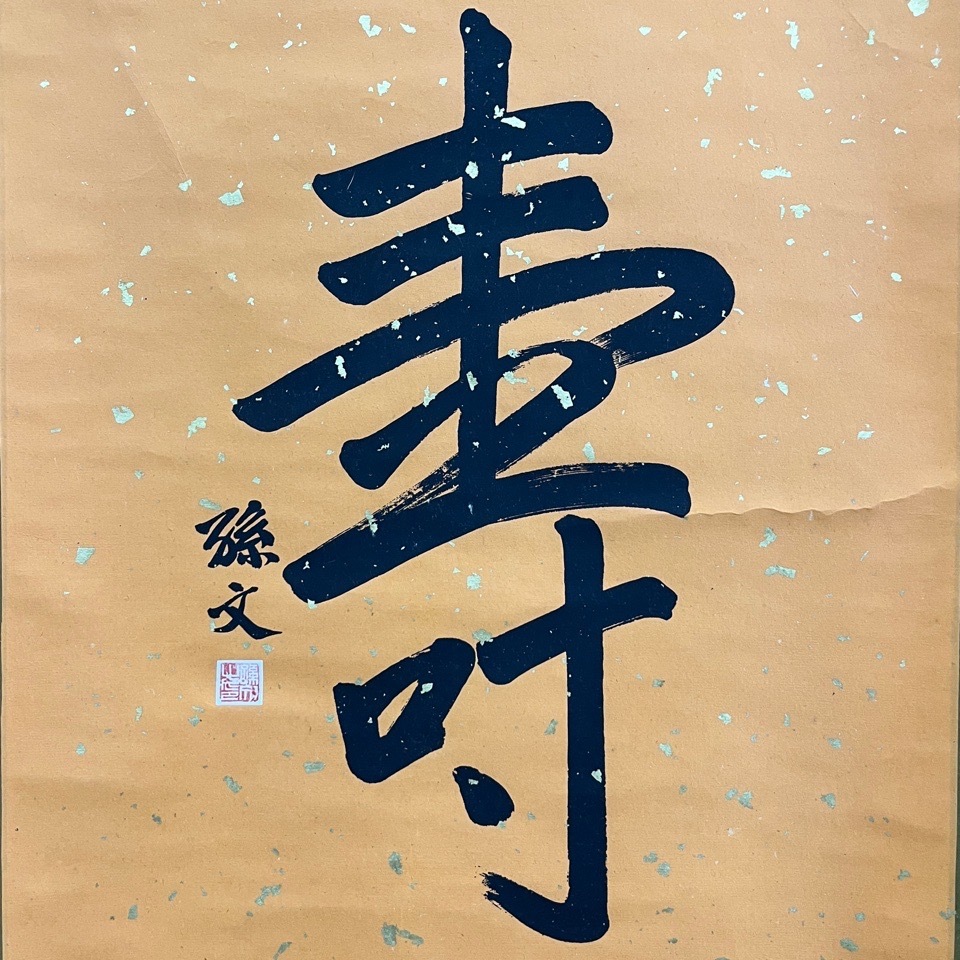 壽
孫文